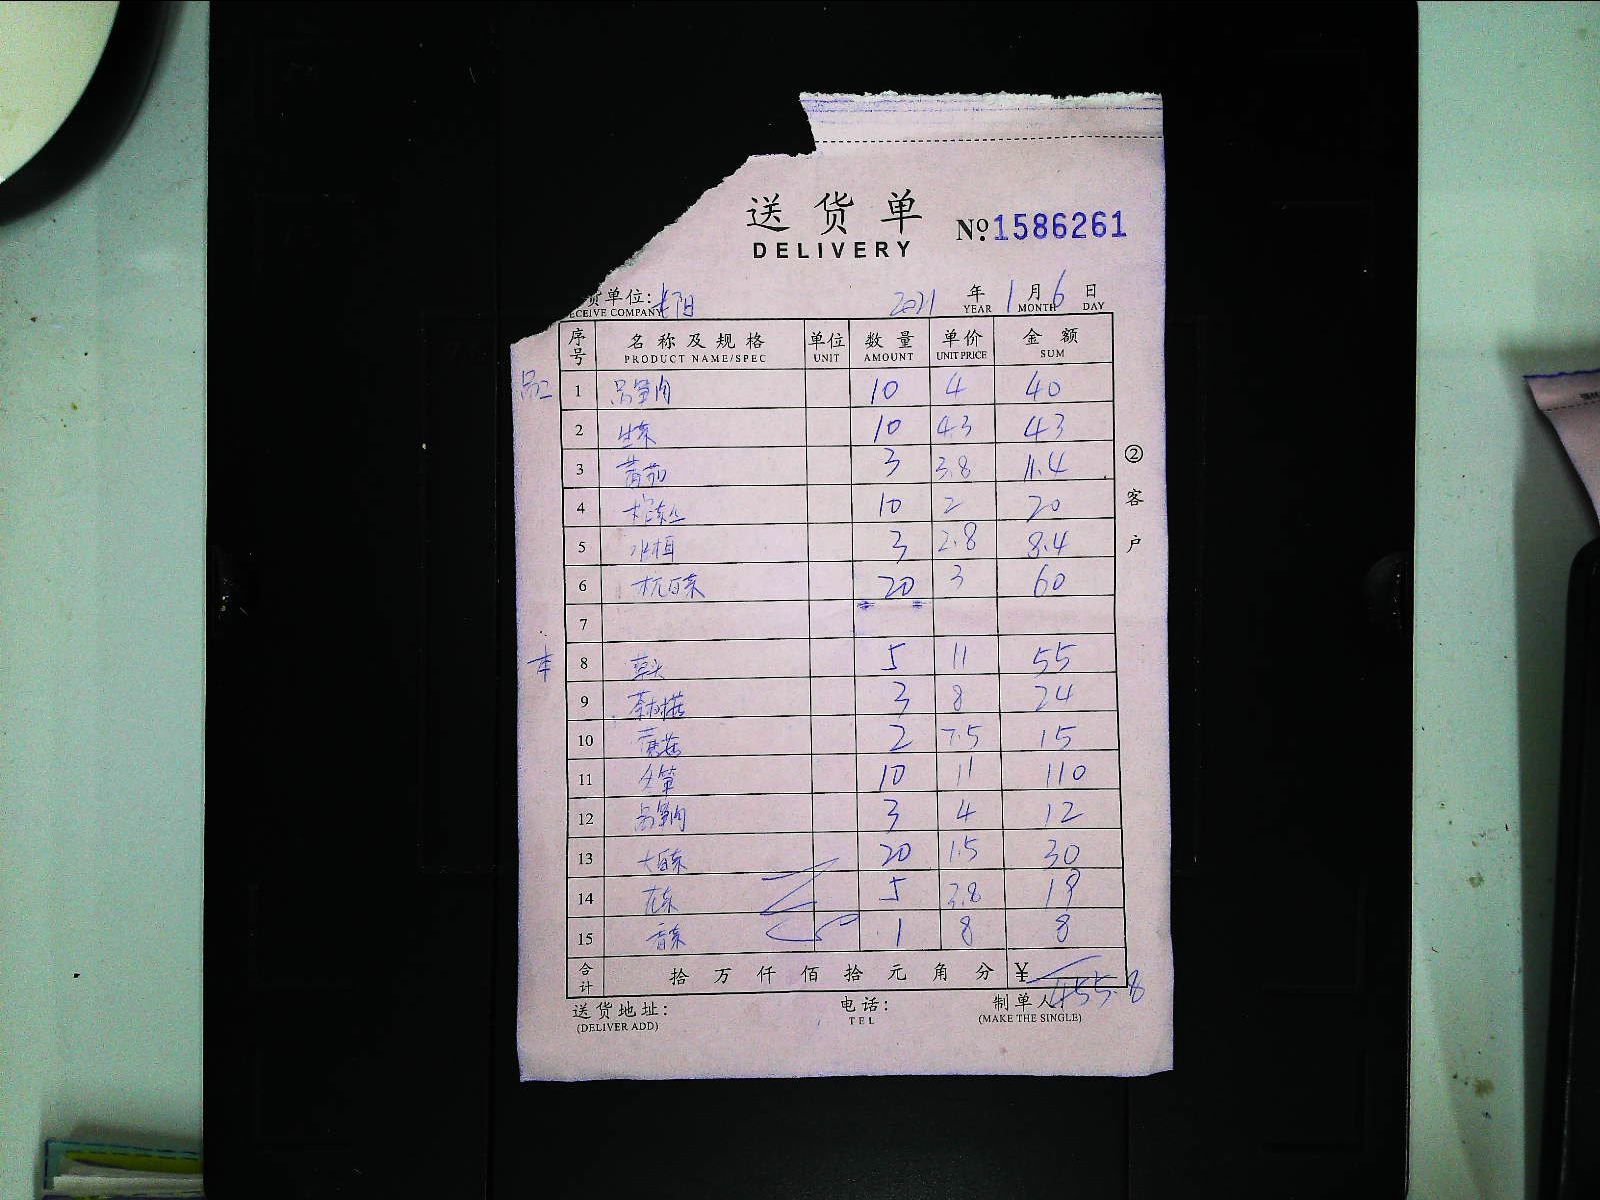 送货单 №1586261
DELIVERY
货单位: 长阳 2021 年 1 月 6 日
ECEIVE COMPANY YEAR MONTH DAY
序号 名称及规格 单位 数量 单价 金额
PRODUCT NAME/SPEC UNIT AMOUNT UNIT PRICE SUM
1 莴笋肉 10 4 40
2 生菜 10 4.3 43
3 蕃茄 3 3.8 11.4
4 10 2 20
5 3 2.8 8.4
6 杭白菜 20 3 60
7
8 草头 5 11 55
9 茶树菇 3 8 24
10 蘑菇 2 7.5 15
11 冬笋 10 11 110
12 莴笋肉 3 4 12
13 大白菜 20 1.5 30
14 5 3.8 19
15 香菜 1 8 8
合计 拾 万 仟 佰 拾 元 角 分 ¥ 455.8
送货地址: 电话: 制单人:
(DELIVER ADD) TEL (MAKE THE SINGLE)
② 客户